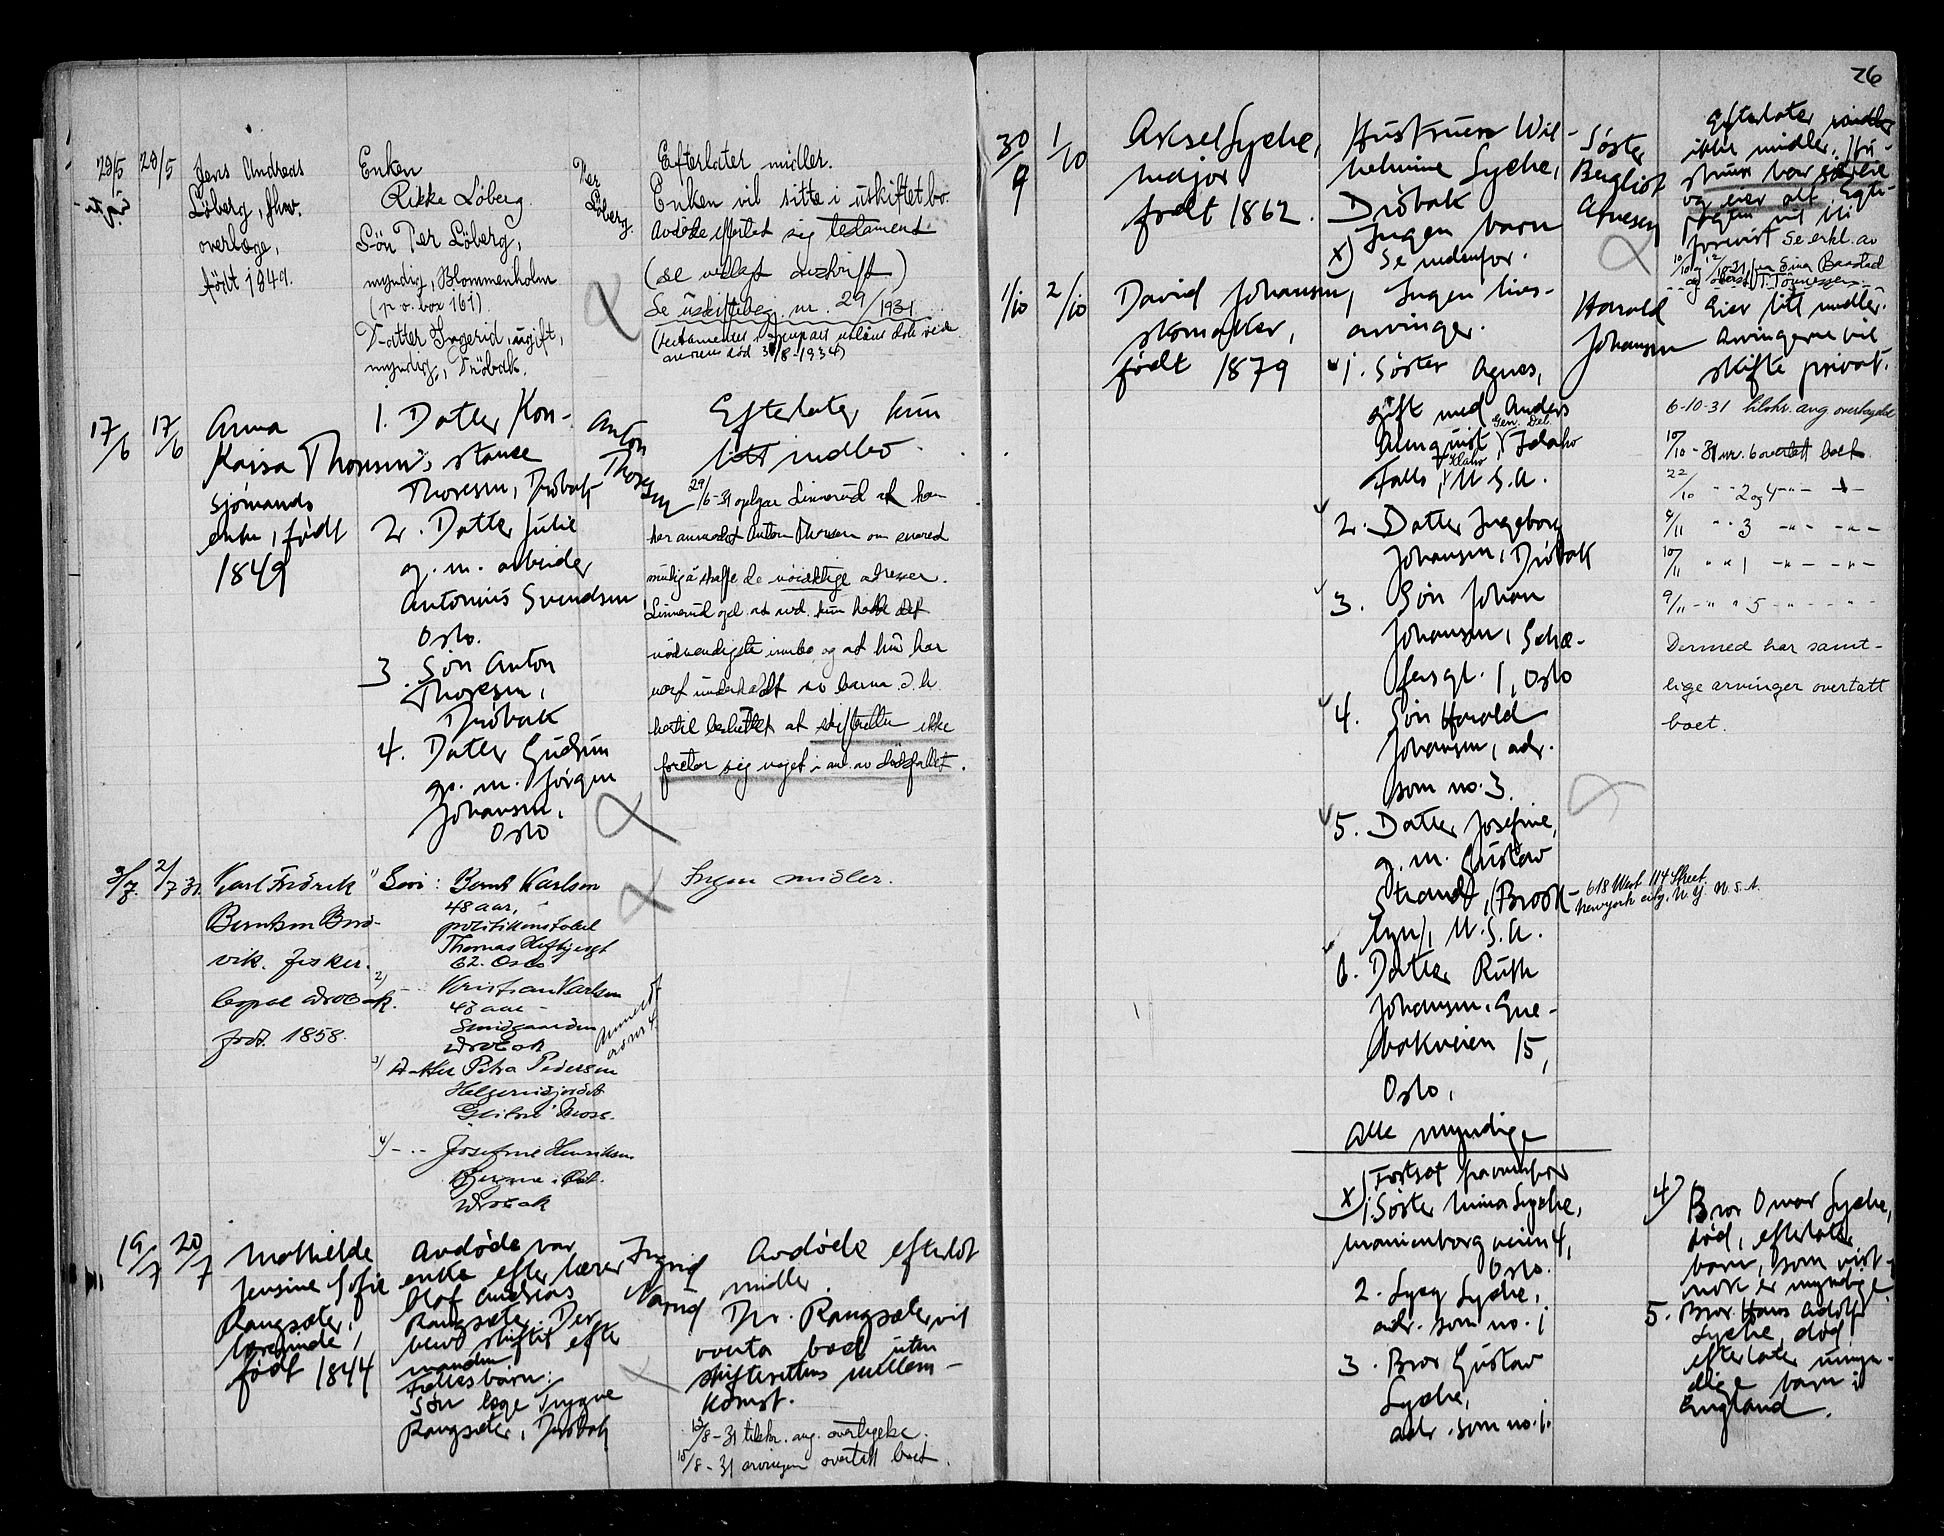 28/5 28/5 Jens Andreas
Löberg, fhv.
overlæge,
födt 1849.
Enken
Rikke Löberg.
Sön Per Löberg,
myndig, Blommenholm
(p.o. box 161)
Datter Ingerid, ugift,
myndig, Dröbak.
Per
Löberg.
Efterlater midler.
Enken vil sitte i uskiftet bo.
Avdöde efterlot sig testament.
(se vedlagt avskrift)
Se uskiftebeg. nr. 29/1931
17/6 17/6 Anna
Kaisa Thoresen,
sjömands
enke, født
1849
1. Datter Kon-
stance
Thoresen, Drøbak
2. Datter Julie
g. m. arbeider
Antonius Svendsen
Oslo.
3. Søn Anton
Thoresen,
Drøbak
4. Datter Gudrun
g. m. Jørgen
Johansen,
Oslo
Anton
Thoresen
Efterlater kun
litt indbo.
29/6-31 opgav Linnerud at han
har anmodet Anton Thoresen om snarest
mulig å skaffe de nöiaktige adresser.
Linnerud opl. at avd. kun hadde det
nödvendigste innbo og at hun har
vært underholdt av barna. D. h.
besluttet at skifteretten ikke
foretar sig noget i anl. av dödsfallet.
2/7 2/7 31. Karl Fredrik
Berntsen Bud-
vik. fisker.
Drøbak.
född. 1858.
1) Søn: Bernt Karlsen
48 aar,
politikonstabel
Thomas Heftyesgt
62. Oslo
2) - Kristian Karlsen
43 aar -
Drøbak
3) Datter Petra Pedersen
Moss.
4) - .. - Josefine Henriksen
Drøbak
Anmeldt
av nr 4.
Ingen midler.
19/7 20/7 Mathilde
Jensine Sofie
Rangsæter,
lærerinde,
født 1844
Avdøde var
enke efter lærer
Olaf Andreas
Rangsæter. Der
blev skiftet efter
manden
Fællesbarn:
Søn læge Trygve
Rangsæter, Drøbak
Ingrid
Avdøde efterlot
midler.
Dr. Rangsæter vil
overta boet uten
skifterettens mellem-
komst.
13/8-31 tilskr. ang. overtagelse.
15/8-31 arvingen overtatt boet.
26
30/9 1/10 Aksel Lyche,
major,
født 1862.
Hustruen Wil-
helmine Lyche,
Drøbak
Ingen barn
x) Se nedenfor.
Søster
Bergliot
Arnesen
Efterlater
ikke midler. Hu-
struen har særeie
og eier alt.
1/10 2/10 David Johansen,
skomaker,
født 1879
Ingen livs-
arvinger.
1. Søster Agnes,
gift med Anders
Gen. Del.
Almquist, Idaho
Idaho
Falls, U.S.A.
2. Datter Ingeborg
Johansen, Drøbak
3. Søn Johan
Johansen, Schæ-
fersgt. 1, Oslo
4. Søn Harald
Johansen, adr.
som no. 3.
5. Datter Josefine,
g. m. Gustav
Strandt, (Brook-
lyn), U.S.A.
618 West 114 Street.
New york city, N.Y. U.S.A.
6. Datter Ruth
Johansen, Gre-
bakveien 15,
Oslo,
Alle myndige
Harald
Johansen
Eier litt midler.
Arvingerne vil
skifte privat.
6-10-31 tilskr. ang. overtagelse
10/10-31 nr. 6 overtatt boet
22/10 " " 2 og 4 -"- -"-
6/11 " " 3 -"- -"-
10/11 " " 1 -"- -"-
9/11 - " " 5 -"- -"-
Dermed har samt-
lige arvinger overtatt
boet.
x) Fortsat fra ovenfor
1. Søster Mina Lyche,
Marienborgveien 4,
Oslo.
2. Lyche,
adr. som no. 1
3. Bror Gustav
Lyche,
adr. som no. 1.
4) Bror Omar Lyche,
død, efterlater
barn, som vist-
nok er myndige.
5. Bror Hans Adolf
Lyche, død,
efterlater umyn-
dige barn i
England.